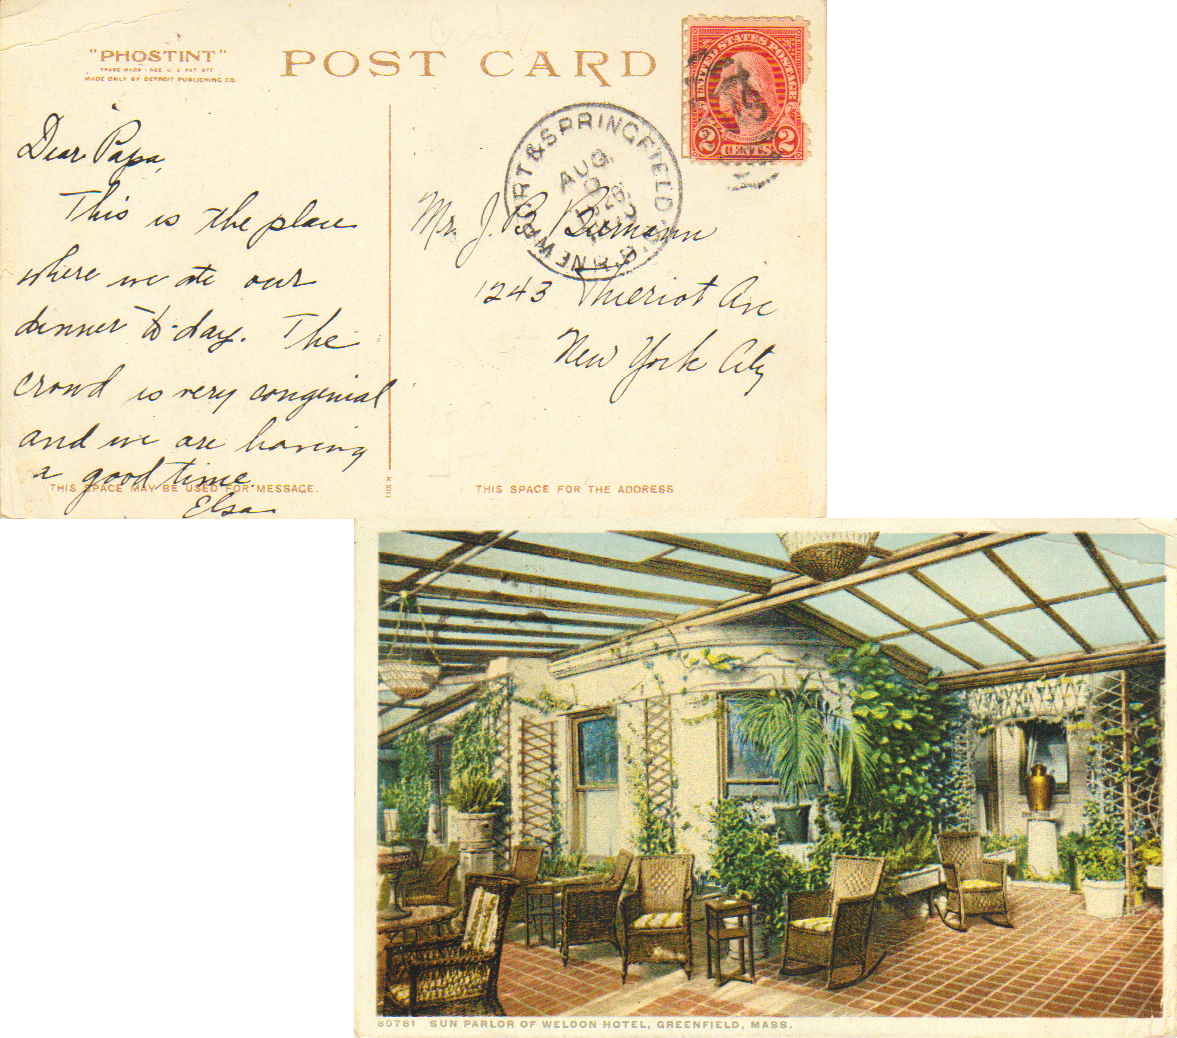 "PHOSTINT"
TRADE MARK - REG. U. S. PAT. OFF.
MADE ONLY BY DETROIT PUBLISHING CO.
POST CARD
UNITED STATES POSTAGE
2 CENTS 2
NEWPORT & SPRINGFIELD
AUG
9
Dear Papa,
This is the place
where we ate our
dinner to-day. The
crowd is very congenial
and we are having
a good time.
Elsa
Mr. J. P. Biermann
1243 Thieriot Ave
New York City
THIS SPACE MAY BE USED FOR MESSAGE.
THIS SPACE FOR THE ADDRESS
SUN PARLOR OF WELDON HOTEL, GREENFIELD, MASS.